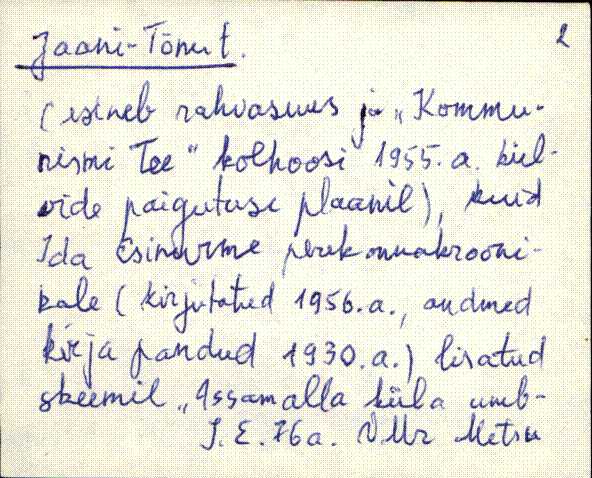 Jaani-Tõnut. 2
(esineb rahvasuus ja „Kommu-
nismi Tee" kolhoosi 1955.a. kül-
vide paigutuse plaanil), kuid
Ida Esinurme perekonnakrooni-
kale (kirjutatud 1956.a., andmed
kirja pandud 1930.a.) lisatud
skeemil „Assamalla küla umb-
J. E. 76a. VMr Metsa